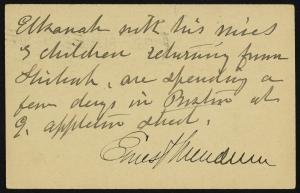 Elkanah with his wives
& children returning from
Shiloah, are spending a
few days in Boston at
9. appleton street.
Ernest